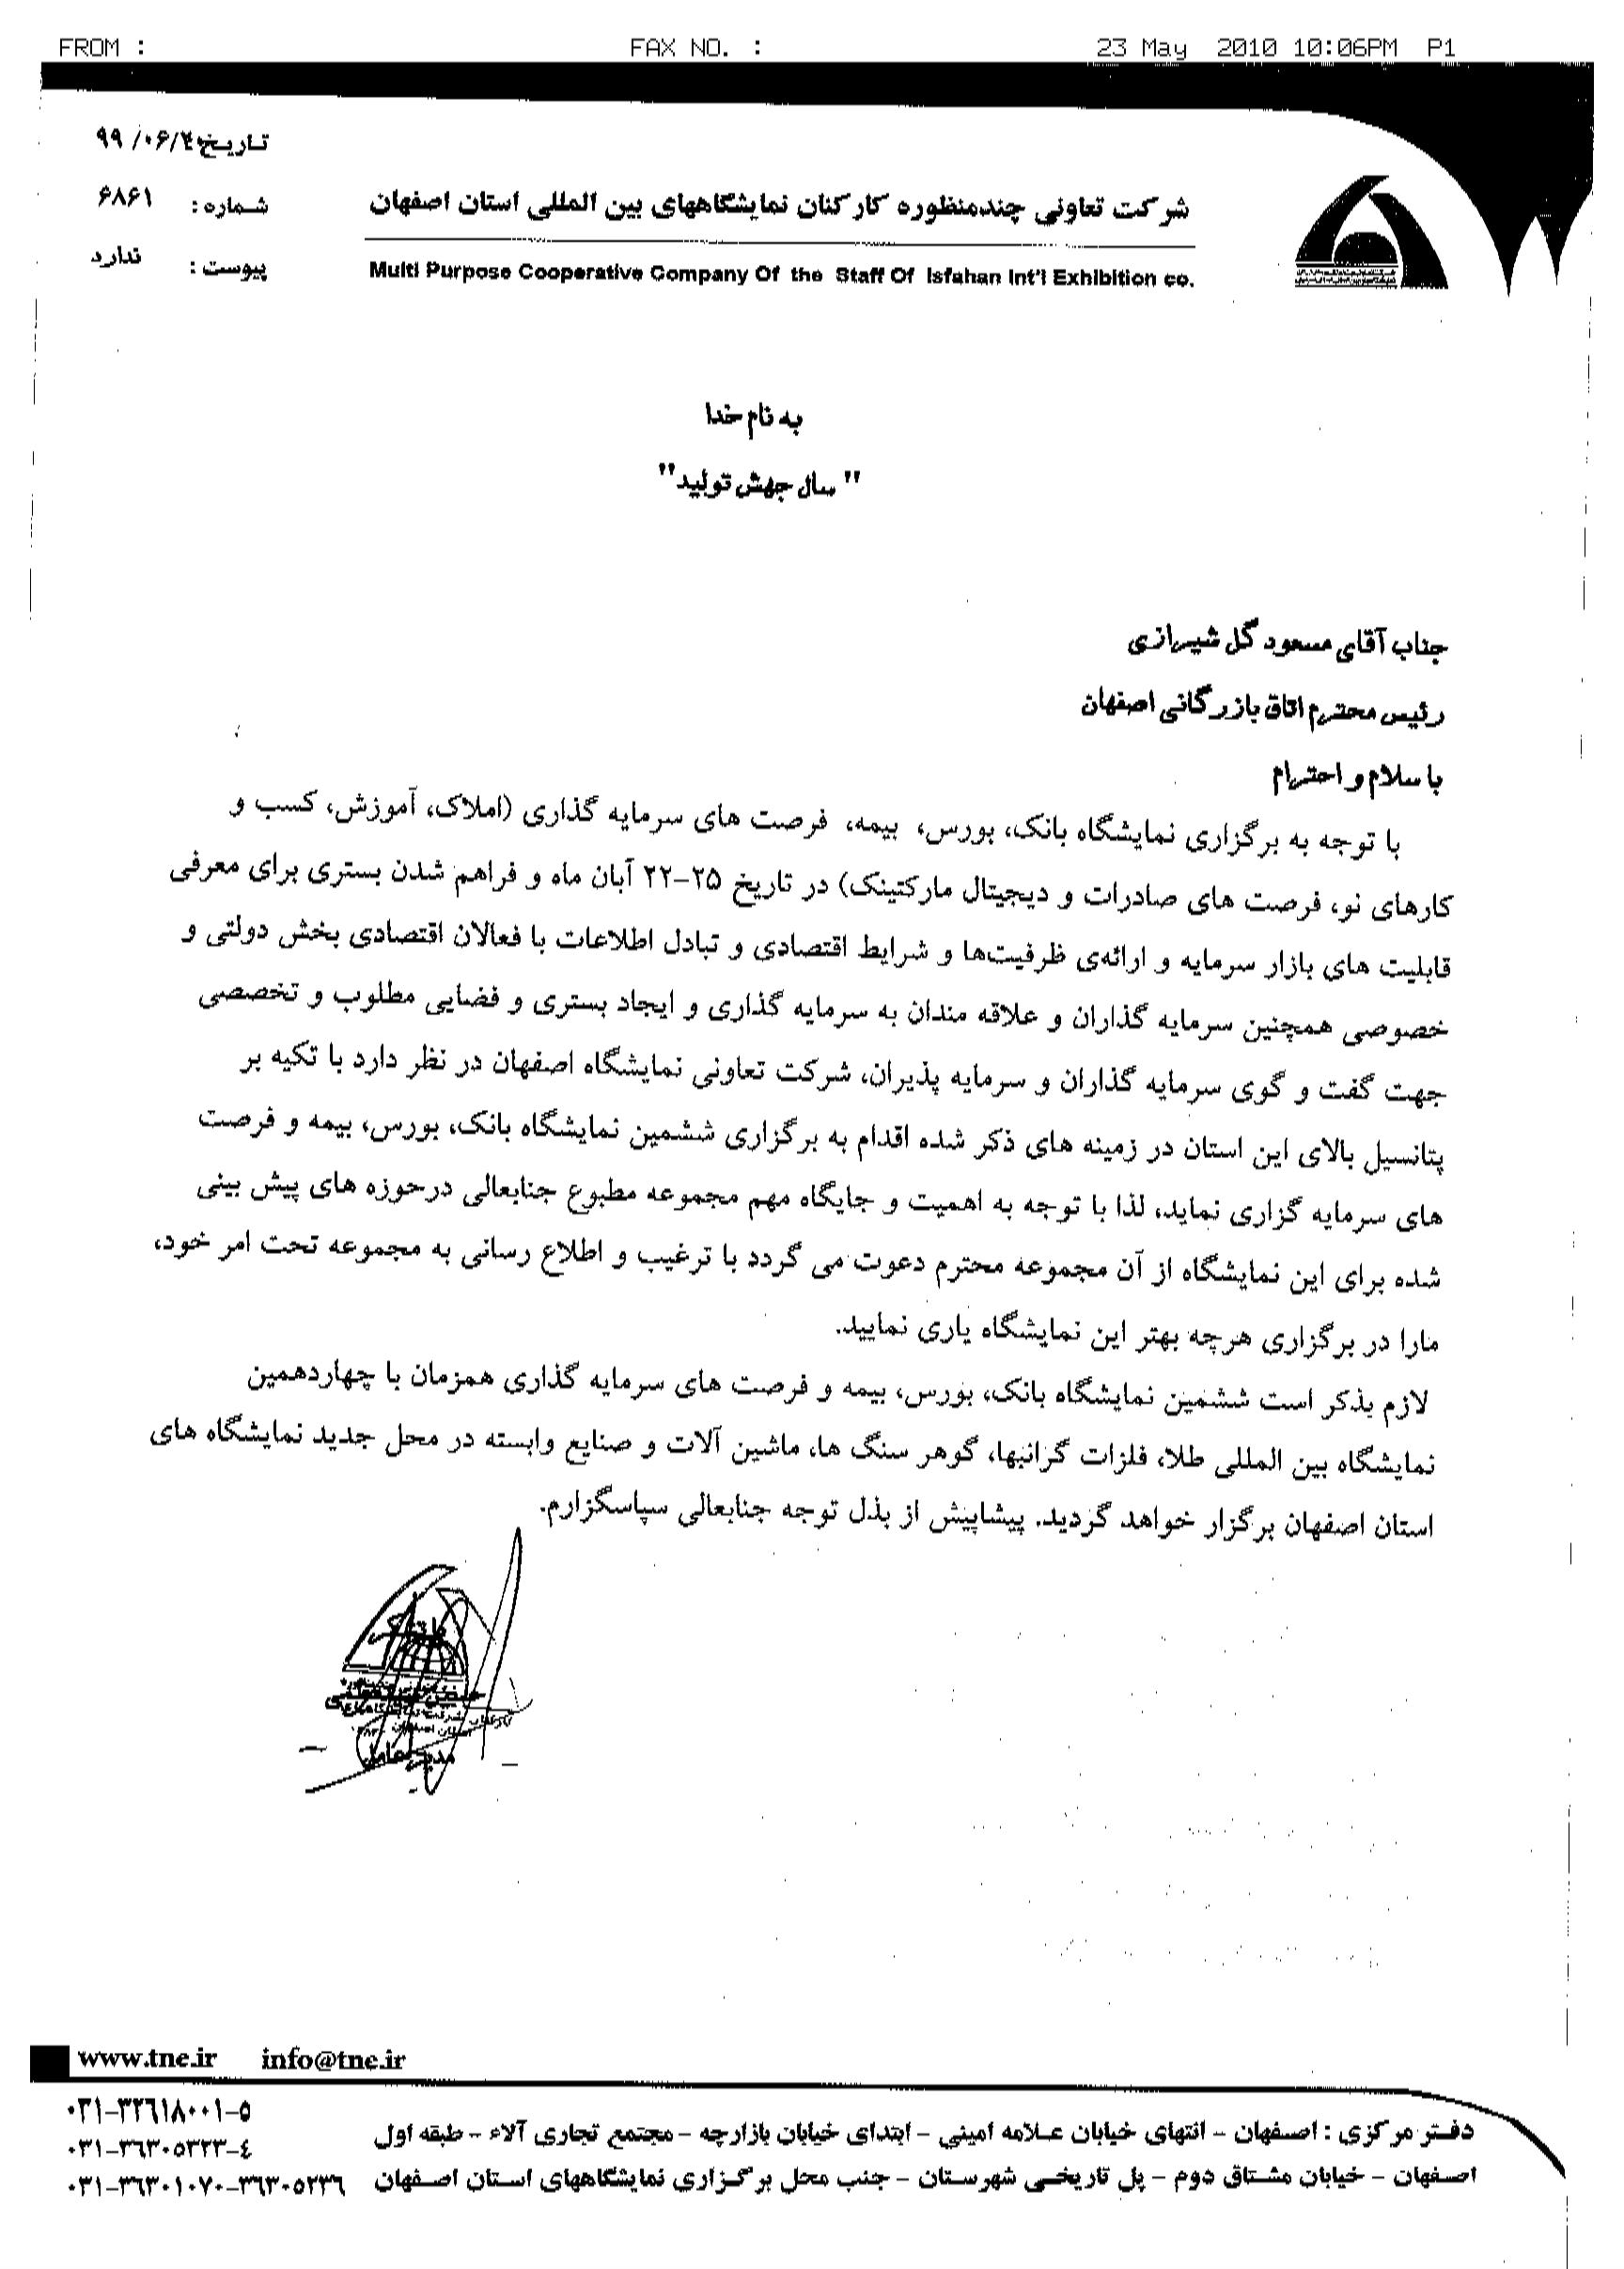 FROM : FAX NO. : 23 May 2010 10:06PM P1
تاریخ: ۹۹/۰۶/
شماره: ۶۸۶۱
پیوست: ندارد
شرکت تعاونی چندمنظوره کارکنان نمایشگاههای بین المللی استان اصفهان
Multi Purpose Cooperative Company Of the Staff Of Isfahan Int'l Exhibition co.
به نام خدا
"سال جهش تولید"
جناب آقای مسعود گل شیرازی
رئیس محترم اتاق بازرگانی اصفهان
با سلام و احترام
با توجه به برگزاری نمایشگاه بانک، بورس، بیمه، فرصت های سرمایه گذاری (املاک، آموزش، کسب و
کارهای نو، فرصت های صادرات و دیجیتال مارکتینک) در تاریخ ۲۵-۲۲ آبان ماه و فراهم شدن بستری برای معرفی
قابلیت های بازار سرمایه و ارائه‌ی ظرفیت‌ها و شرایط اقتصادی و تبادل اطلاعات با فعالان اقتصادی بخش دولتی و
خصوصی همچنین سرمایه گذاران و علاقه مندان به سرمایه گذاری و ایجاد بستری و فضایی مطلوب و تخصصی
جهت گفت و گوی سرمایه گذاران و سرمایه پذیران، شرکت تعاونی نمایشگاه اصفهان در نظر دارد با تکیه بر
پتانسیل بالای این استان در زمینه های ذکر شده اقدام به برگزاری ششمین نمایشگاه بانک، بورس، بیمه و فرصت
های سرمایه گزاری نماید، لذا با توجه به اهمیت و جایگاه مهم مجموعه مطبوع جنابعالی درحوزه های پیش بینی
شده برای این نمایشگاه از آن مجموعه محترم دعوت می گردد با ترغیب و اطلاع رسانی به مجموعه تحت امر خود،
مارا در برگزاری هرچه بهتر این نمایشگاه یاری نمایید.
لازم بذکر است ششمین نمایشگاه بانک، بورس، بیمه و فرصت های سرمایه گذاری همزمان با چهاردهمین
نمایشگاه بین المللی طلا، فلزات گرانبها، گوهر سنگ ها، ماشین آلات و صنایع وابسته در محل جدید نمایشگاه های
استان اصفهان برگزار خواهد گردید. پیشاپیش از بذل توجه جنابعالی سپاسگزارم.
مدیر عامل
www.tne.ir info@tne.ir
دفتر مرکزی : اصفهان - انتهای خیابان علامه امینی - ابتدای خیابان بازارچه - مجتمع تجاری آلاء - طبقه اول
اصفهان - خیابان مشتاق دوم - پل تاریخی شهرستان - جنب محل برگزاری نمایشگاههای استان اصفهان
۰۳۱-۳۲۶۱۸۰۰۱-۵
۰۳۱-۳۶۳۰۵۲۲۳-۴
۰۳۱-۳۶۳۰۱۰۷۰-۳۶۳۰۵۲۳۶